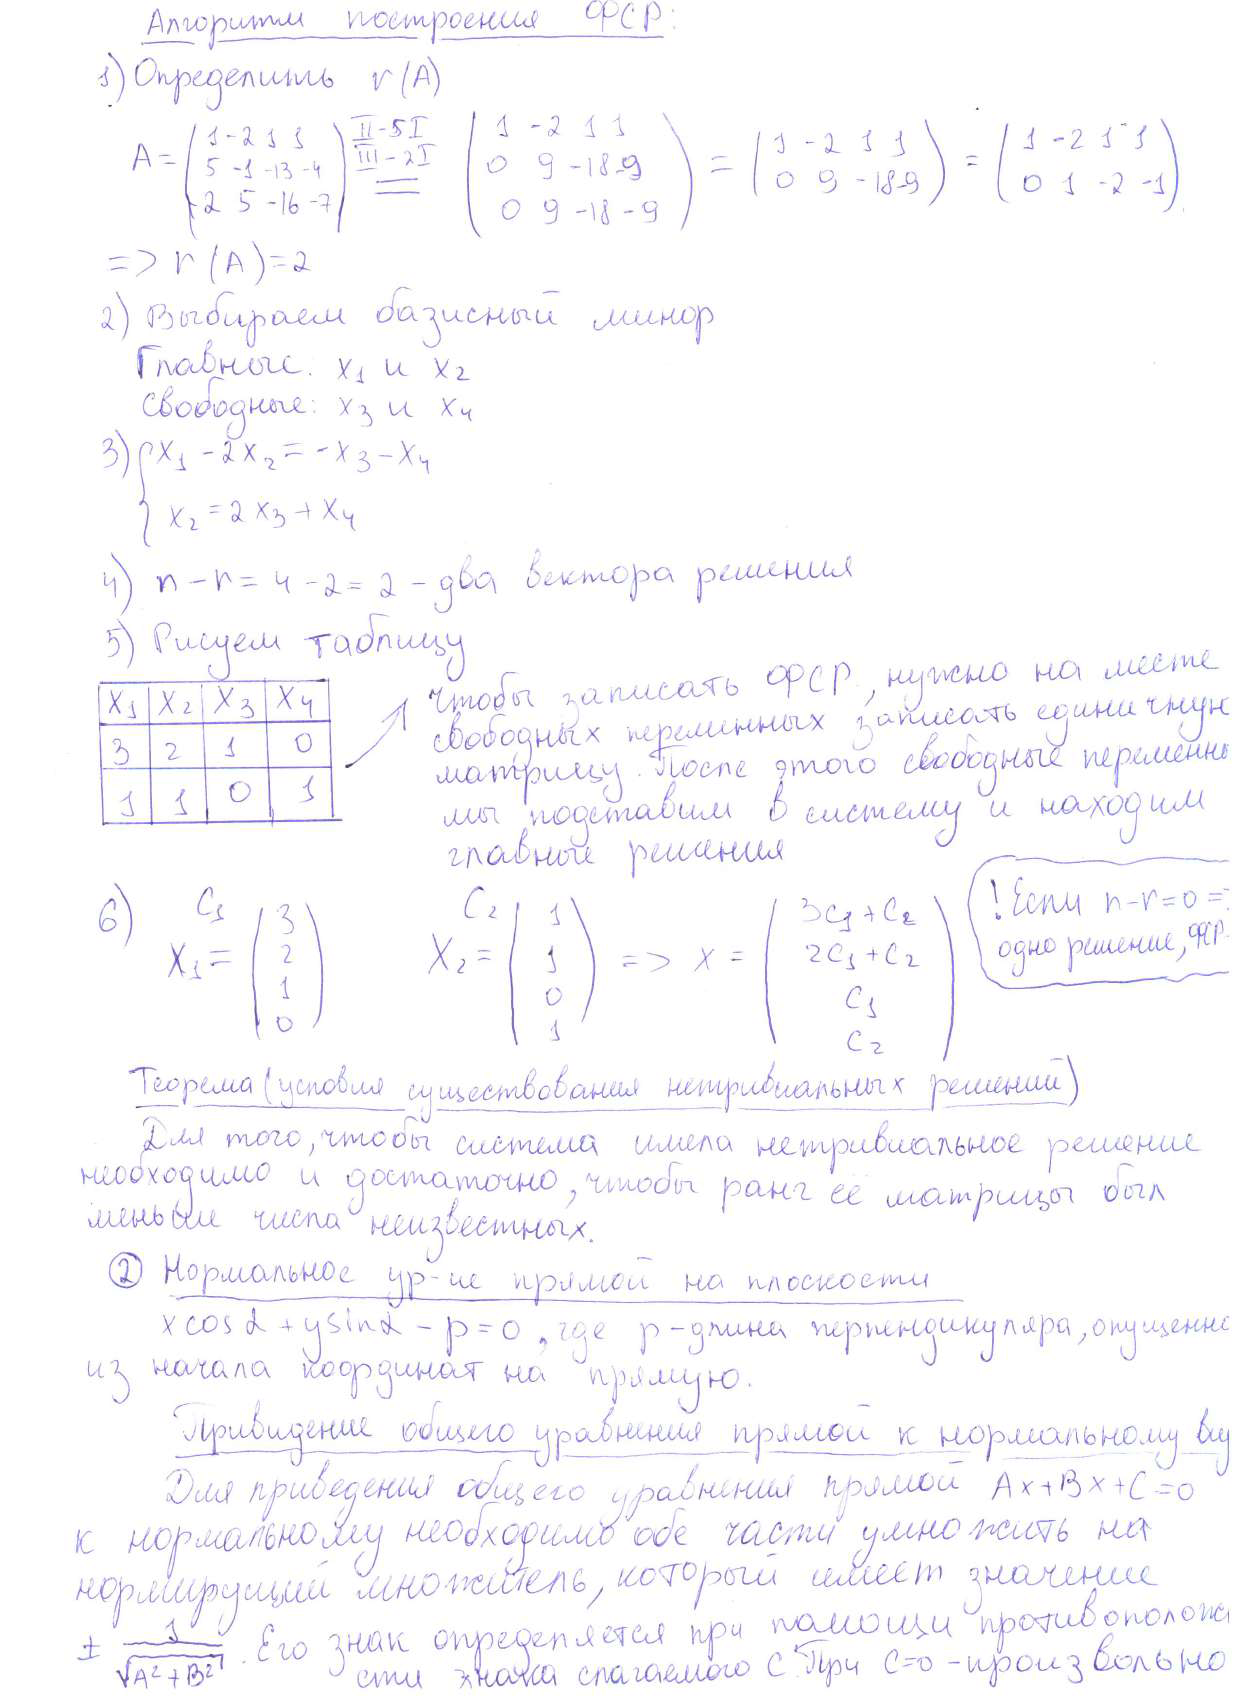 Алгоритм построения ФСР:
1) Определить r(A)
A = (1 -2 1 1 / 5 -1 -13 -4 / 2 5 -16 -7) II-5I III-2I = (1 -2 1 1 / 0 9 -18 -9 / 0 9 -18 -9) = (1 -2 1 1 / 0 9 -18 -9) = (1 -2 1 1 / 0 1 -2 -1)
=> r(A)=2
2) Выбираем базисный минор
Главные: x₁ и x₂
Свободные: x₃ и x₄
3) { x₁ - 2x₂ = -x₃ - x₄
x₂ = 2x₃ + x₄
4) n - r = 4 - 2 = 2 - два вектора решения
5) Рисуем таблицу
x₁ x₂ x₃ x₄
3 2 1 0
1 1 0 1
Чтобы записать ФСР, нужно на месте
свободных переменных записать единичную
матрицу. После этого свободные переменны
мы подставим в систему и находим
главные решения
6) C₁ X₁ = (3 / 2 / 1 / 0) C₂ X₂ = (1 / 1 / 0 / 1) => X = (3C₁+C₂ / 2C₁+C₂ / C₁ / C₂)
! Если n-r=0 =>
одно решение, ФСР
Теорема (условия существования нетривиальных решений)
Для того, чтобы система имела нетривиальное решение
необходимо и достаточно, чтобы ранг её матрицы был
меньше числа неизвестных.
② Нормальное ур-ие прямой на плоскости
x cos α + y sin α - p = 0, где p - длина перпендикуляра, опущенно
из начала координат на прямую.
Привидение общего уравнения прямой к нормальному виду
Для приведения общего уравнения прямой Ax+Bx+C=0
к нормальному необходимо обе части умножить на
нормирующий множитель, который имеет значение
± 1/√(A²+B²). Его знак определяется при помощи противополож
сти знака слагаемого C. При C=0 - произвольно